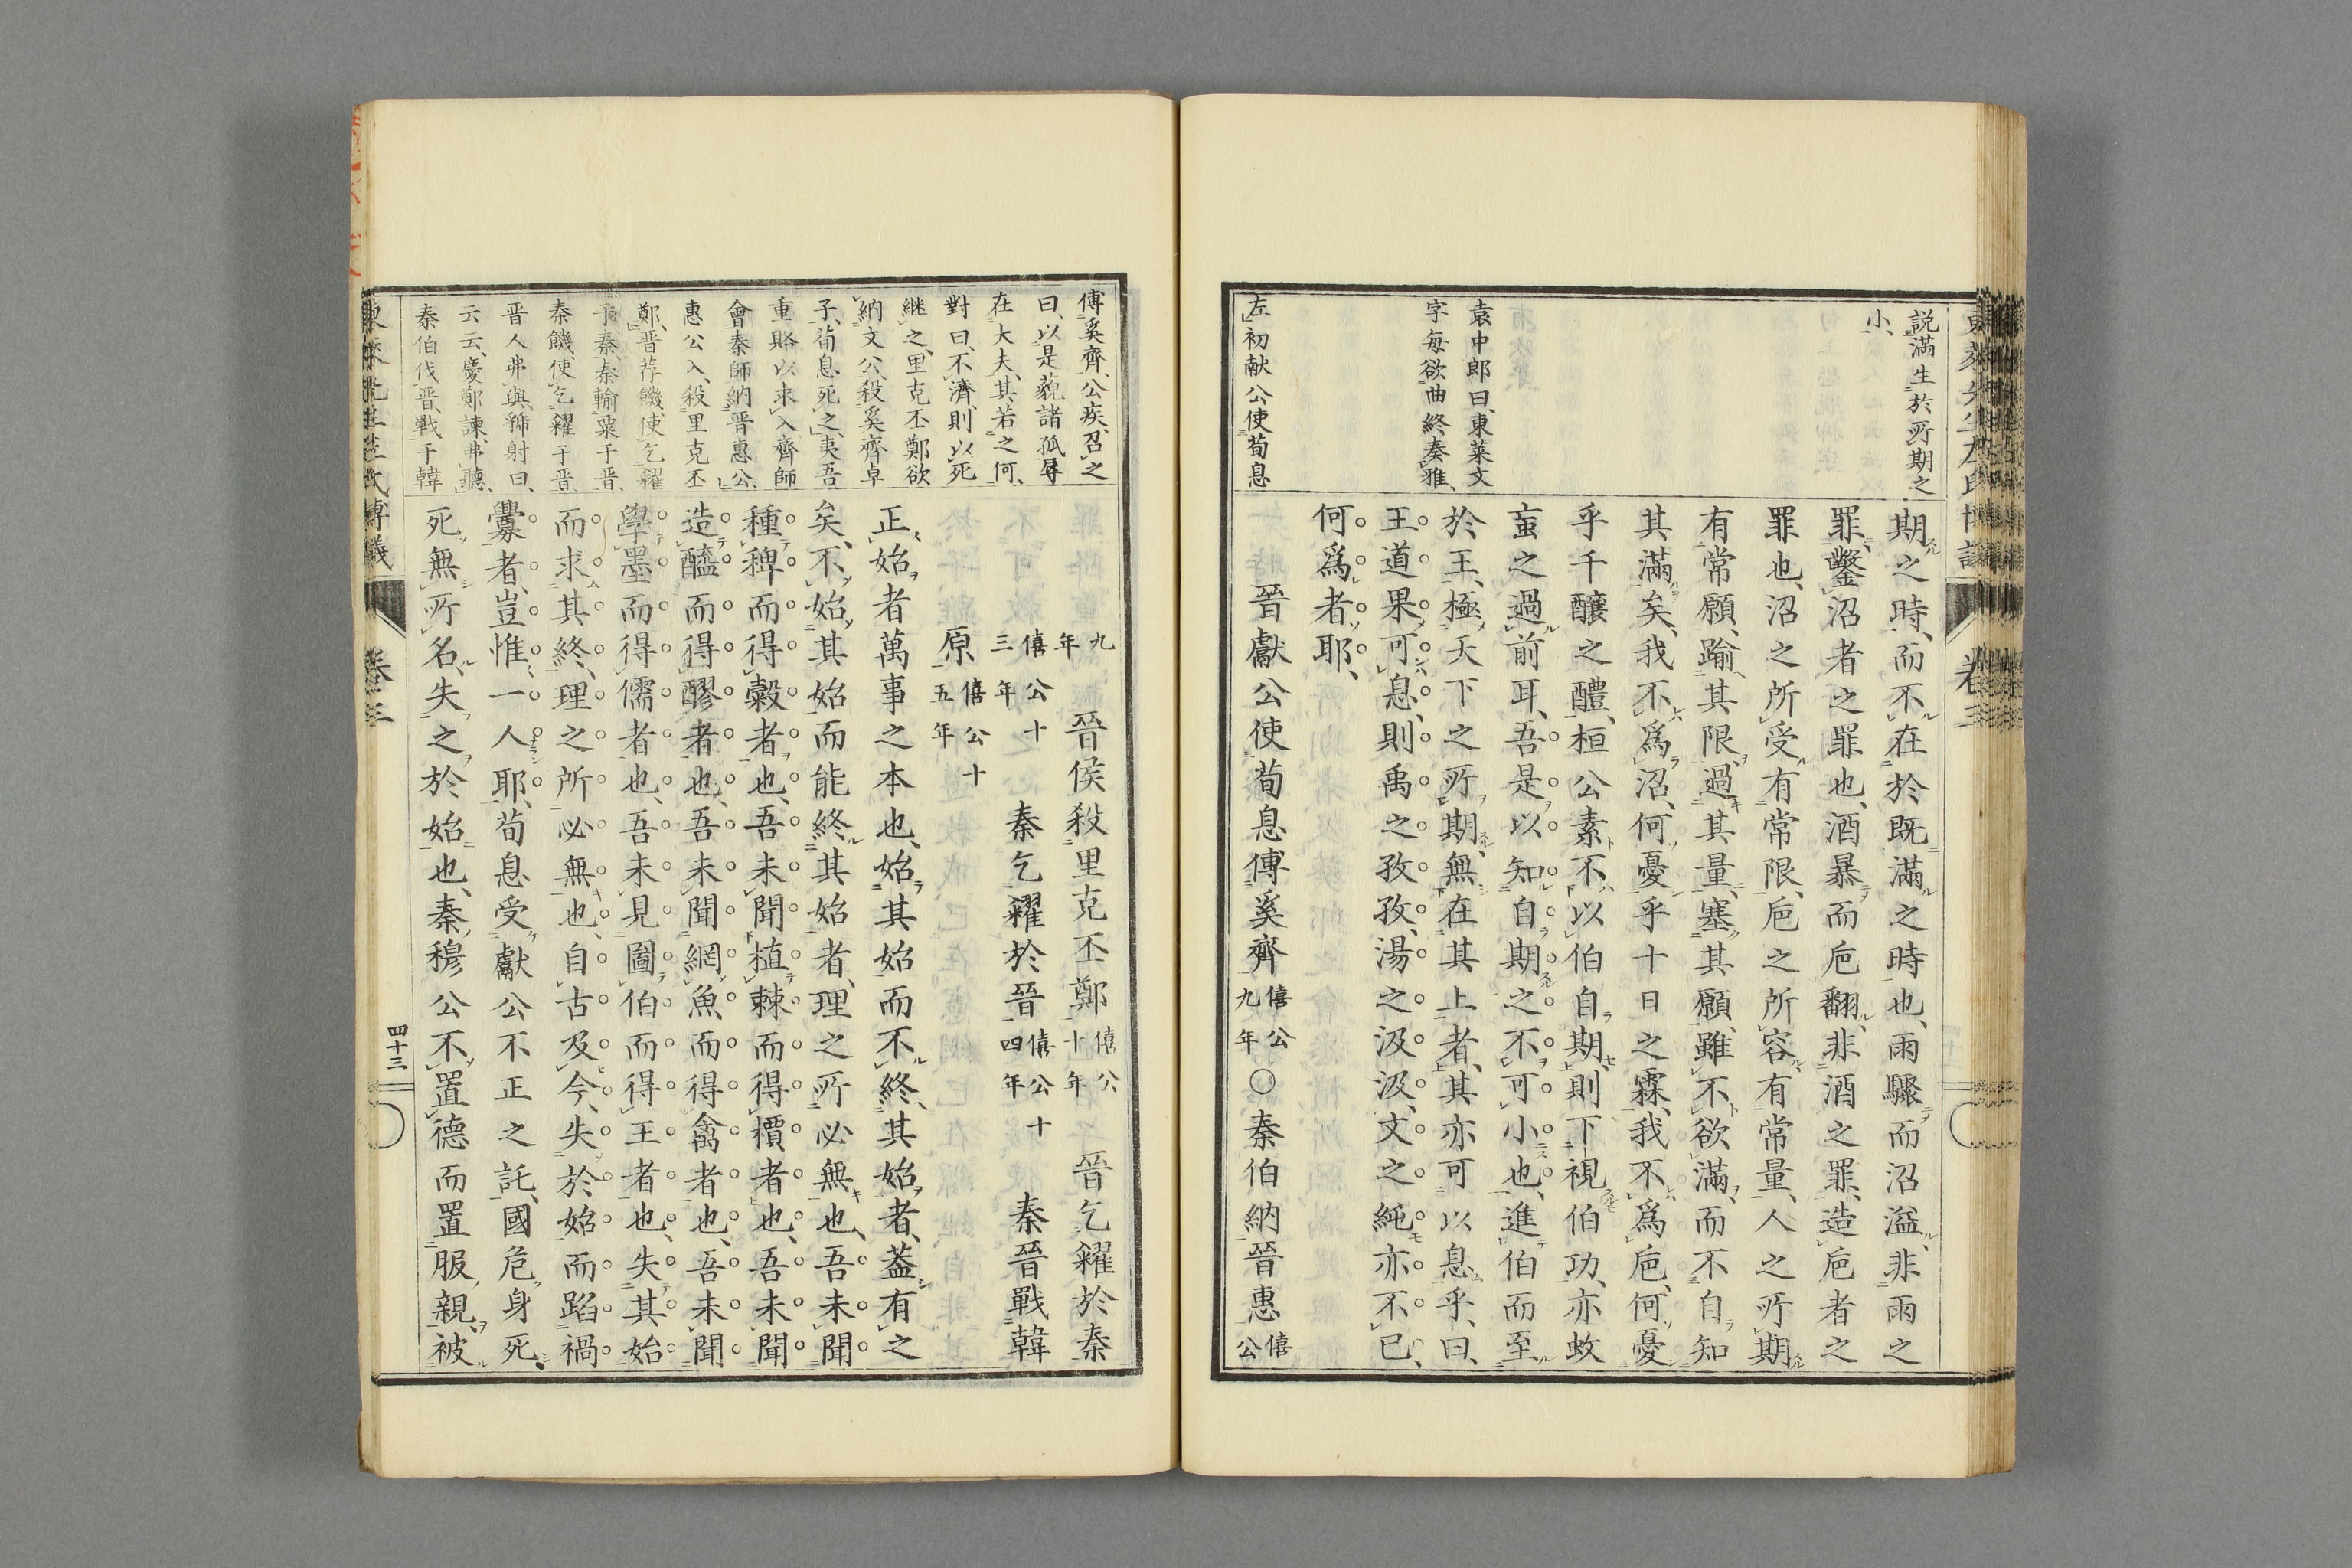 説滿生於所期之
小、
袁中郎曰、東萊文
字每欲曲終奏雅、
左初献公使荀息
期之時、而不在於既滿之時也、雨驟而沼溢、非雨之
罪、鑿沼者之罪也、酒暴而巵翻、非酒之罪、造巵者之
罪也、沼之所受有常限、巵之所容有常量、人之所期
有常願、踰其限、過其量、塞其願、雖不欲滿、而不自知
其滿矣、我不爲沼、何憂乎十日之霖、我不爲巵、何憂
乎千釀之醴、桓公素不以伯自期、則下視伯功、亦蚊
䖟之過前耳、吾是以知自期之不可小也、進伯而至
於王、極天下之所期、無在其上者、其亦可以息乎、曰、
王道果可息、則禹之孜孜、湯之汲汲、文之純亦不已、
何爲者耶、
晉獻公使荀息傅奚齊僖公九年○秦伯納晉惠公僖
卷三
傅奚齊、公疾、召之
曰、以是藐諸孤辱
在大夫、其若之何、
對曰、不濟、則以死
継之、里克丕鄭欲
納文公、殺奚齊卓
子、荀息死之、夷吾
重賂以求入、齊師
會秦師納晋惠公、
惠公入、殺里克丕
鄭、晋荐饑、使乞糴
于秦、秦輸粟于晋、
秦饑、使乞糴于晋、
晋人弗與、虢射曰、
云云、慶鄭諫、弗聽、
秦伯伐晋、戰于韓
九年 晉侯殺里克丕鄭僖公十年 晉乞糴於秦
僖公十三年 秦乞糴於晉僖公十四年 秦晉戰韓
原僖公十五年
正始者萬事之本也、始其始而不終其始者、蓋有之
矣、不始其始而能終其始者、理之所必無也、吾未聞
種稗而得穀者也、吾未聞植棘而得檟者也、吾未聞
造醯而得醪者也、吾未聞網魚而得禽者也、吾未聞
學墨而得儒者也、吾未見圖伯而得王者也、失其始
而求其終、理之所必無也、自古及今、失於始而蹈禍
釁者、豈惟一人耶、荀息受獻公不正之託、國危身死、
死無所名、失之於始也、秦穆公不置德而置服、親被
東萊先生左氏博議
卷三
四十三